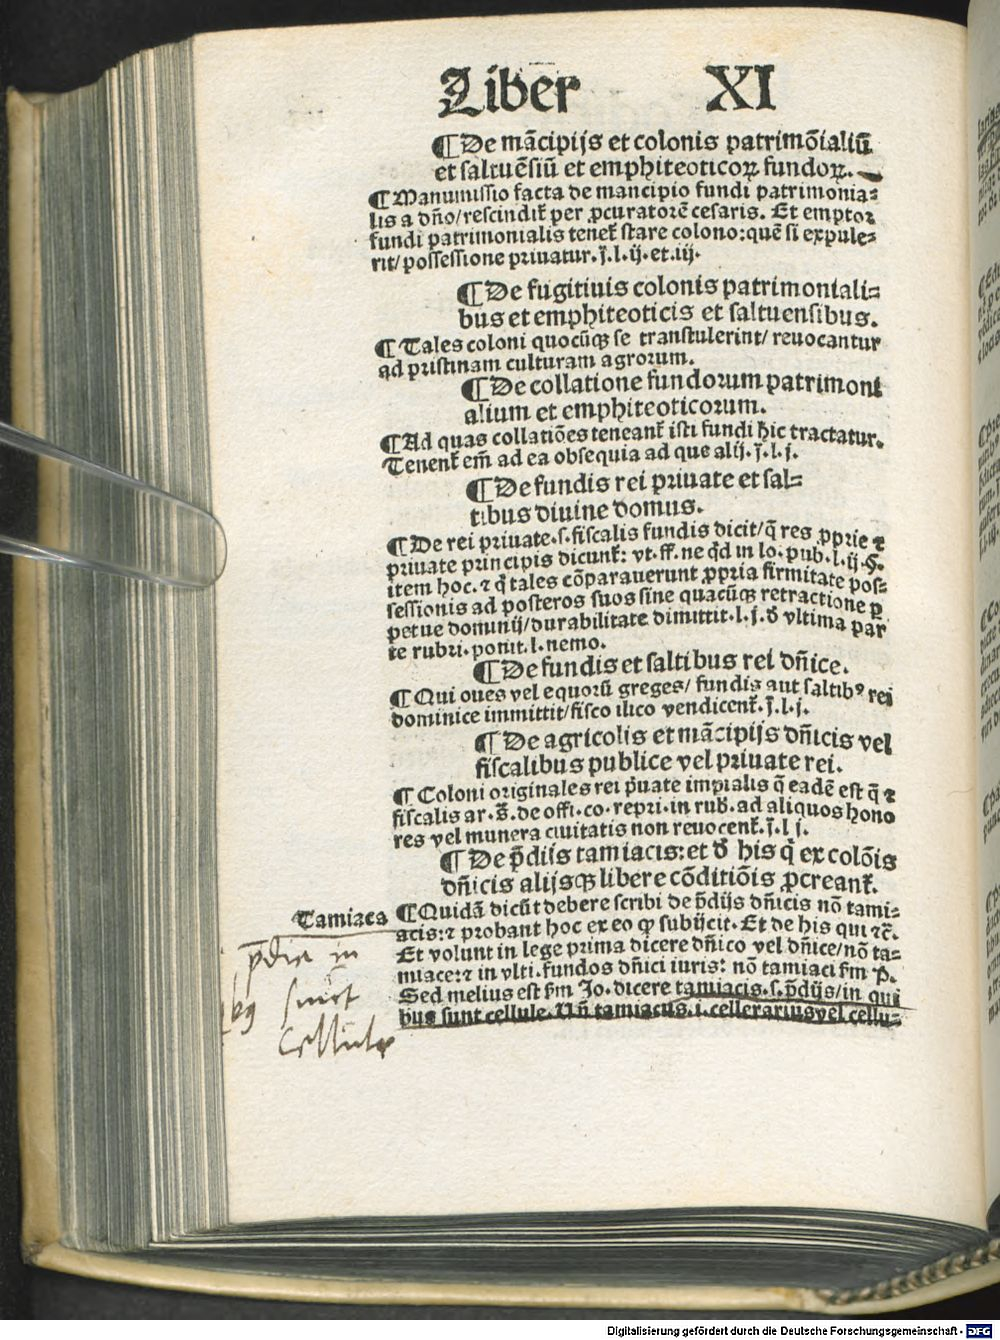 Liber XI
¶ De mācipijs et colonis patrimōialiū
et saltuēsiū et emphiteoticoꝝ fundoꝝ.
¶ Manumissio facta de mancipio fundi patrimonia⸗
lis a dño/rescindit̄ per ꝓcuratorē cesaris. Et emptor
fundi patrimonialis tenet̄ stare colono: quē si expule⸗
rit/possessione priuatur. j̄. l. ij. et. iij.
¶ De fugitiuis colonis patrimoniali⸗
bus et emphiteoticis et saltuensibus.
¶ Tales coloni quocūqꝫ se transtulerint/ reuocantur
ad pristinam culturam agrorum.
¶ De collatione fundorum patrimoni
alium et emphiteoticorum.
¶ Ad quas collatiōes teneant̄ isti fundi hic tractatur.
Tenent̄ em̄ ad ea obsequia ad que alij. j̄. l. j.
¶ De fundis rei priuate et sal⸗
tibus diuine domus.
¶ De rei priuate. s. fiscalis fundis dicit/q̄ res ꝓprie ⁊
priuate principis dicunt̄: vt. ff. ne qd̄ in lo. pub. l. ij. §.
item hoc. ⁊ q̄ tales cōparauerunt ꝓpria firmitate pos⸗
sessionis ad posteros suos sine quacūqꝫ retractione ꝑ
petue dominij/durabilitate dimittit. l. j. d̄ vltima par
te rubri. ponit. l. nemo.
¶ De fundis et saltibus rei dñice.
¶ Qui oues vel equorū greges/ fundis aut saltibꝰ rei
dominice immittit/fisco ilico vendicent̄. j̄. l. j.
¶ De agricolis et mācipijs dñicis vel
fiscalibus publice vel priuate rei.
¶ Coloni originales rei p̄uate imp̄ialis q̄ eadē est q̄ ⁊
fiscalis ar. s̄. de offi. co. repri. in rub̄. ad aliquos hono
res vel munera ciuitatis non reuocent̄. j̄. l j.
¶ De p̄dijs tamiacis: et d̄ his q̄ ex colōis
dñicis alijsqꝫ libere cōditiōis ꝓcreant̄.
Tamiaca
¶ Quidā dicūt debere scribi de p̄dijs dñicis nō tami⸗
acis: ⁊ probant hoc ex eo qꝙ subijcit. Et de his qui ⁊c̄.
Et volunt in lege prima dicere dñico vel dñice/nō ta⸗
miace: ⁊ in vlti. fundos dñici iuris: nō tamiaci fm̄ P.
Sed melius est fm̄ Jo. dicere tamiacis. s. p̄dijs/in qui
bus sunt cellule. Uñ tamiacus. i. cellerarius vel cellu⸗
p̄dia in
bꝰ sunt
cellule
Digitalisierung gefördert durch die Deutsche Forschungsgemeinschaft - DFG